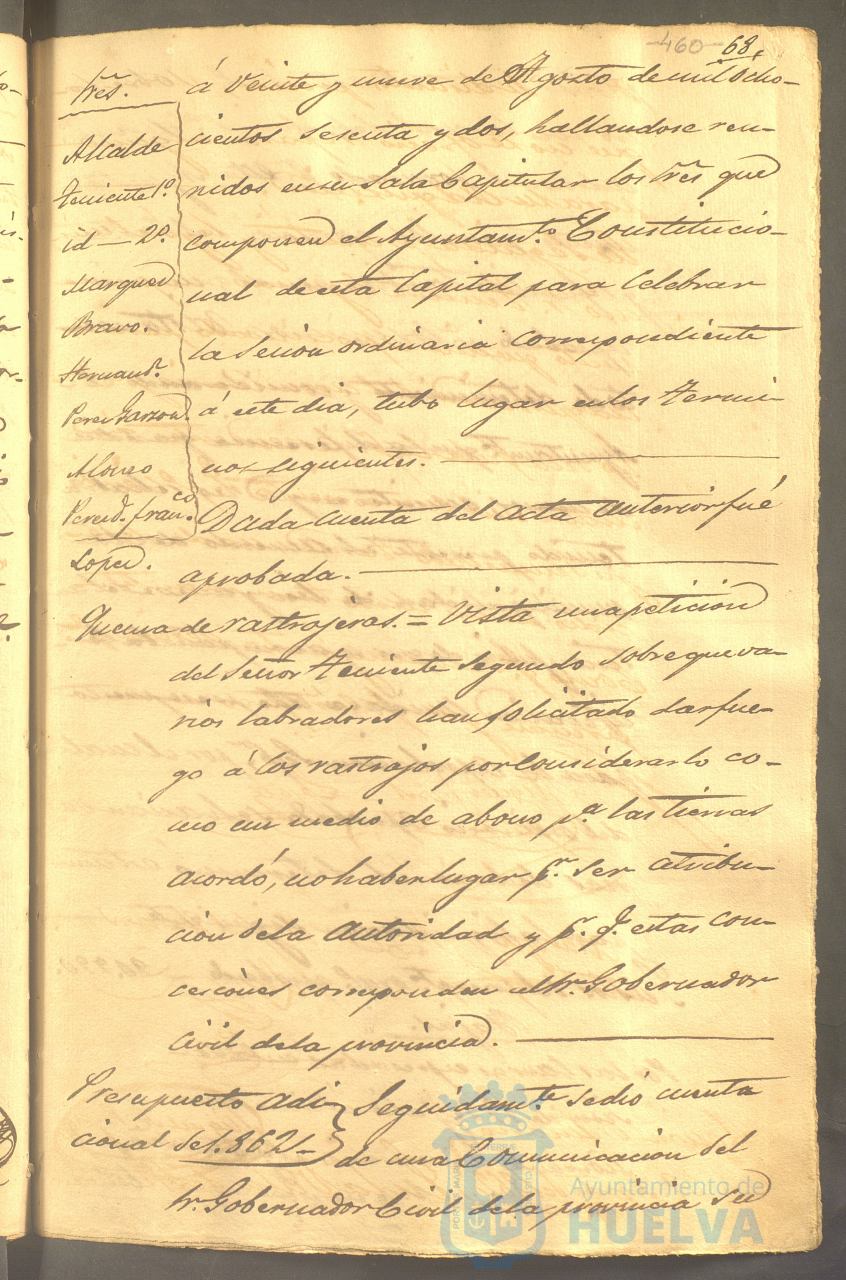 460 68.
Sres.
Alcalde
Teniente 1º
id — 2º.
Marquez
Bravo.
Hernandz.
Perez Garzon.
Alonso
Perez d. Franco.
Lopez.
á Veinte y nueve de Agosto de mil ocho-
cientos sesenta y dos, hallandose reu-
nidos en su Sala Capitular los Sres. que
componen el Ayuntamto. Constitucio-
nal de esta Capital para Celebrar
la Sesion ordinaria correspondiente
á este dia, tubo lugar en los termi-
nos siguientes.
Dada cuenta del acta anterior fué
aprobada.
Quema de rastrojeras. = Vista una peticion
del Señor Teniente Segundo sobre que va-
rios labradores han solicitado dar fue-
go á los rastrojos por Considerarlo co-
mo un medio de abono pa. las tierras
acordó, no haber lugar pr. ser atribu-
cion de la Autoridad y pr. q. estas con-
cesiones corresponden al Sr. Gobernador
Civil de la provincia.
Presupuesto adi
cional de 1.862 —
Seguidamte. se dió cuenta
de una Comunicacion del
Sr. Gobernador Civil de la provincia su
Ayuntamiento de
HUELVA